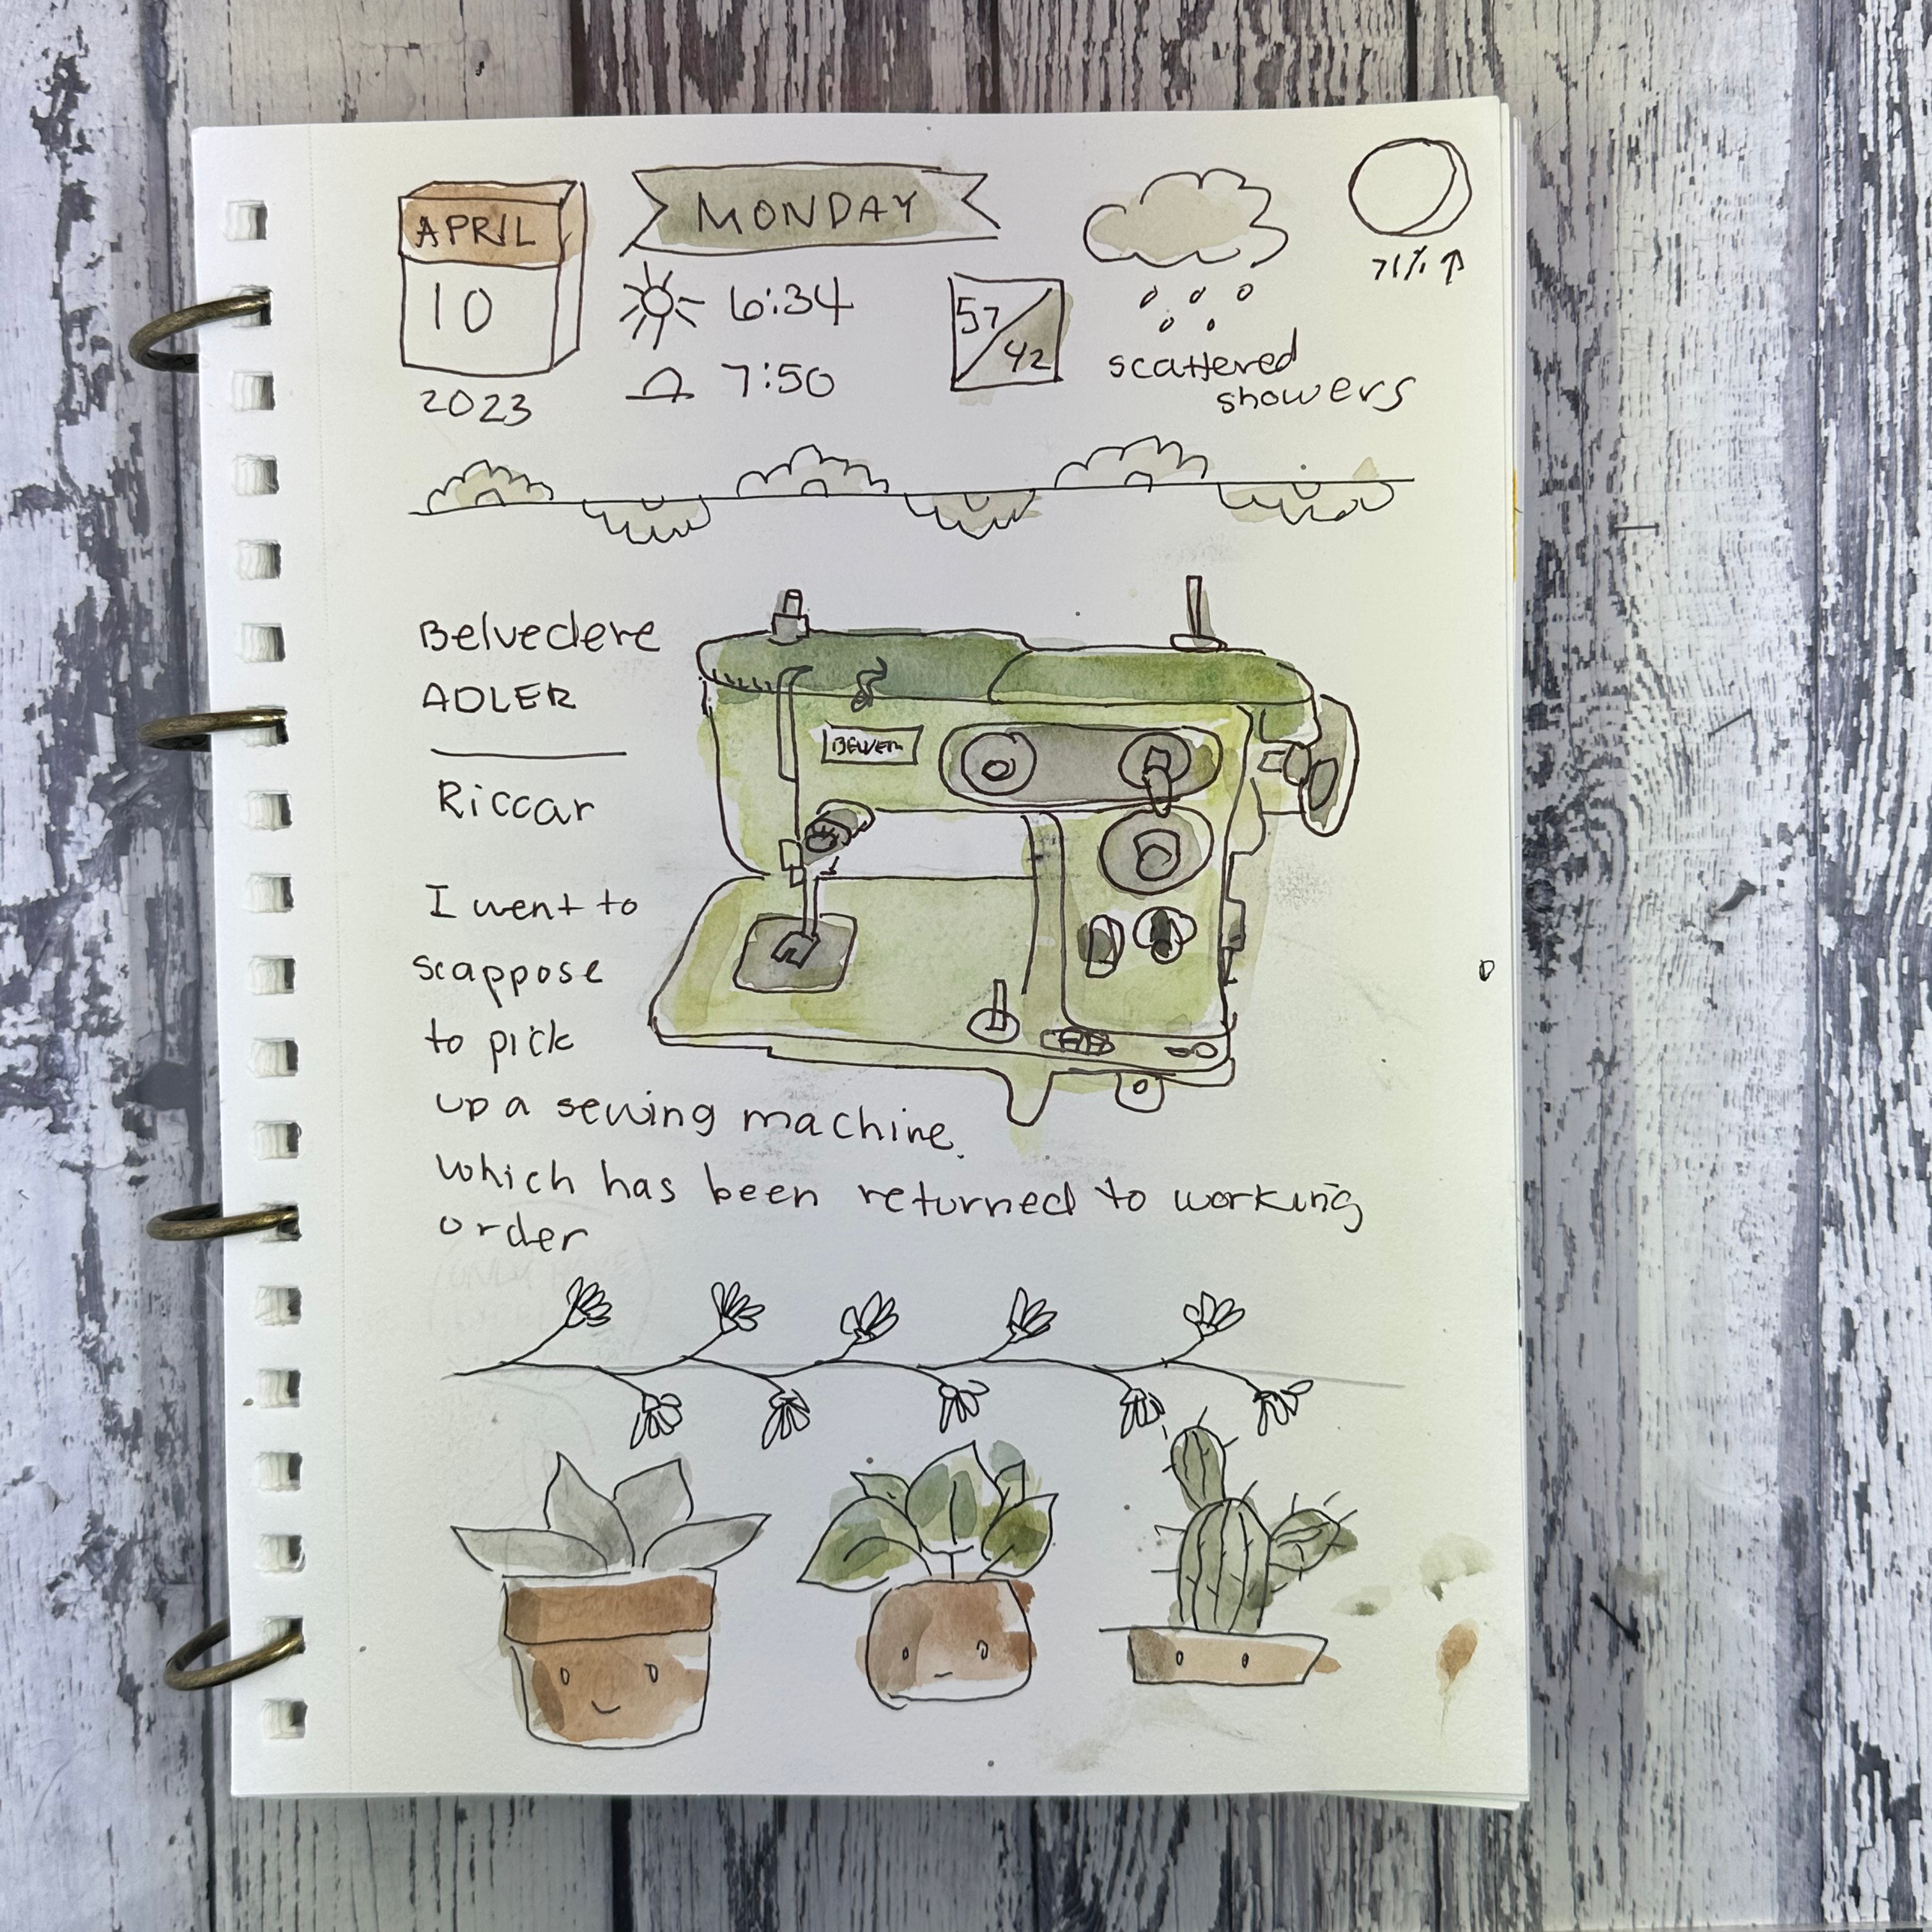 APRIL
10
2023
MONDAY
6:34
7:50
57
42
scattered
showers
71% ↑
Belvedere
ADLER
Riccar
I went to
scappose
to pick
up a sewing machine.
which has been returned to working
order